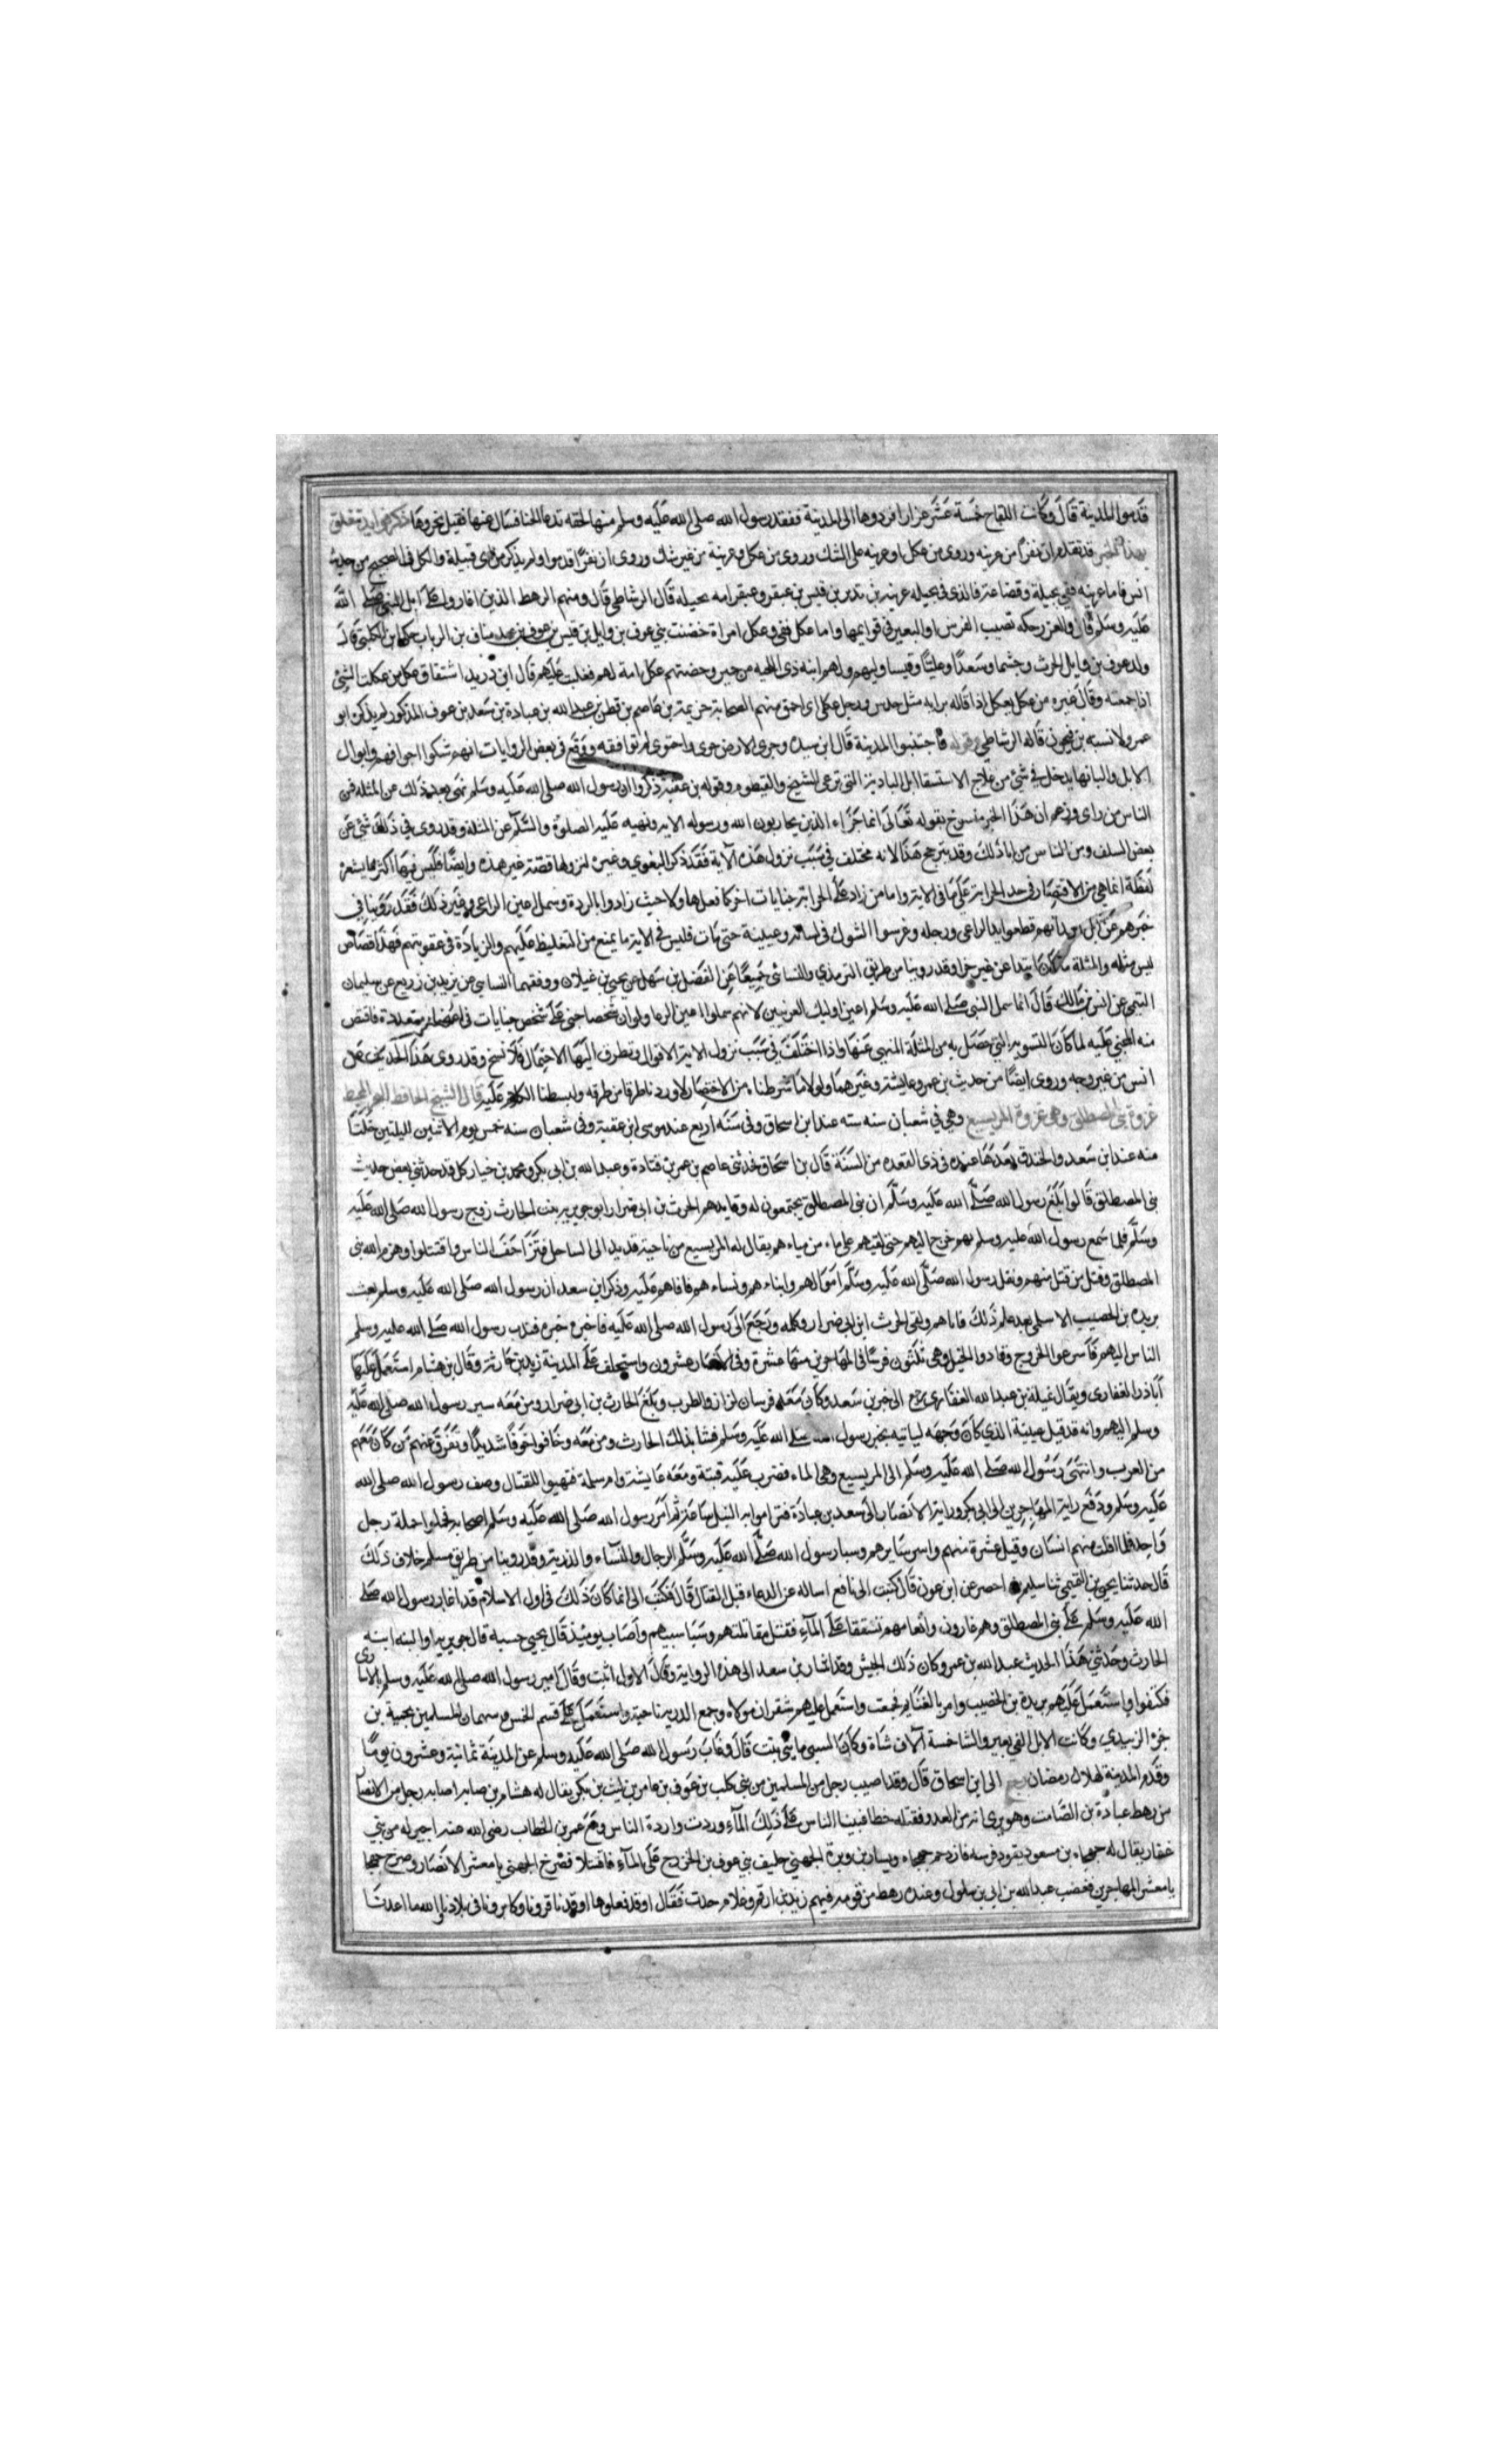 قدموا المدينة قال وكانت اللقاح خمسة عشر غزارا فردوها الى المدينة ففقد رسول الله صلى الله عليه وسلم منها لقحة تدعا الحنا فسال عنها فقيل نحروها ذكر فوايد تتعلق
بهذا الخبر قد تقدم ان نفرًا من عرينه وروى من عكل او عرينه على الشك وروى من عكل وعرينة من غير شك وروى ان نفرًا قدموا ولم يذكر من اى قبيلة والكل فى الصحيح من حديث
انس فاما عرينه ففى بجيلة وقضاعة فالذى فى بجيله عرينه بن نذير بن قيس بن عبقر وعبقر امه بجيله قال الرشاطى قال ومنهم الرهط الذين اغاروا على ابل النبى صلى الله
عليه وسلم قال والعرن حكه تصيب الفرس او البعير فى قوايمها واما عكل ففى وعكل امراة حضنت بنى عوف بن وايل بن قيس بن عوف بن عبد مناف بن الرباب حكا ابن الكلبى قال
ولد عوف بن وايل الحرث وجشما وسعدًا وعليًا وقيسا وامهم ابنه ذى اللحيه من حمير وحضنتهم عكل امة لهم فغلبت عليهم قال ابن دريد اشتقاق عكل من عكلت الشئ
اذا جمعته وقال غيره من عكل يعكل اذا قاله برايه مثل حدس ورجل عكلى اى احمق منهم الصحابة خزيمة بن عاصم بن قطن بن عبد الله بن عبادة بن سعد بن عوف المذكور لم يذكره ابو
عمر ولا نسبه بن فتحون قاله الرشاطى وقوله فاجتنبوا المدينة قال ابن سيده وجوى الارض جوى واحتوى لم توافقه ووقع فى بعض الروايات انهم شكوا اجوافهم وابوال
الابل والبانها يدخل فى شئ من علاج الاستسقا ابل البادية التى ترعى الشيح والقيطوم وقوله بن عقبة ذكروا ان رسول الله صلى الله عليه وسلم نهى بعد ذلك عن المثله فمن
الناس من راى وزعم ان هذا الخبر منسوخ بقوله تعالى انما جزاء الذين يحاربون الله ورسوله الايه ونهيه عليه الصلوة والسلام عن المثلة وقد روى فى ذلك شئ عن
بعض السلف ومن الناس من ابا ذلك وقد يترجح هذا لانه مختلف فى سبب نزول هذه الآية فقد ذكر البغوى وغيره لنزولها قصة غير هذه وايضًا فليس فيها اكثر مما يشعر
لفظة انما هى من الاقتصار فى حد الحرابة على ما فى الاية واما من زاد على الحرابة جنايات اخر كما فعل هاولا حيث زادوا بالردة وسمل اعين الراعى وغير ذلك فقد روينا فى
خبرهم عن ابن سعد انهم قطعوا يد الراعى ورجله وغرسوا الشوك فى لسانه وعينية حتى مات فليس فى الاية ما يمنع من التغليظ عليهم والزيادة فى عقوبتهم فهذا قصاص
ليس مثله والمثلة ما كان ابتدا عن غير جزا وقد روينا من طريق الترمذى والنسائى جميعًا عن الفضل بن سهل عن يحيى بن غيلان ووفقهما النسايى عن يزيد بن زريع عن سليمان
التيمى عن انس بن مالك قال انما سمل النبى صلى الله عليه وسلم اعين اوليك العرنيين لانهم سملوا اعين الرعا ولو ان شخصا جنى على شخص جنايات فى اعضا متعددة فاقتص
منه المجنى عليه لما كان التسويه التى حصل به من المثلة المنهى عنها واذا اختلف فى سبب نزول الاية الاقوال وتطرق اليها الاحتمال فلا نسخ وقد روى هذا الحديث عن
انس من غير وجه وروى ايضًا من حديث بن عمر وعايشة وغيرهما ولولا ما شرطنا من الاختصار لاوردنا طرقا من طرقه ولبسطنا الكلام عليه قال الشيخ الحافظ
غزوة بنى المصطلق وهى غزوة المريسيع وهى فى شعبان سنه سته عند ابن اسحاق وفى سنه اربع عند موسى ابن عقبة وفى شعبان سنه خمس يوم الاثنين لليلتين خلتا
منه عند ابن سعد والخندق بعدها عنده فى ذى القعده من السنة قال بن اسحاق فحدثنى عاصم بن عمر بن قتادة وعبد الله بن ابى بكر ومحمد بن خيار كل قد حدثنى بعض حديث
بنى المصطلق قالوا بلغ رسول الله صلى الله عليه وسلم ان بنى المصطلق يجتمعون له وقايدهم الحرث بن ابى ضرار ابو جويرية بنت الحارث زوج رسول الله صلى الله عليه
وسلم فلما سمع رسول الله عليه وسلم بهم خرج اليهم حتى لقيهم على ماء من مياههم يقال له المريسيع من ناحية قديد الى الساحل فتزاحف الناس واقتتلوا وهزم الله بنى
المصطلق وقتل من قتل منهم ونفل رسول الله صلى الله عليه وسلم اموالهم وابناءهم ونساءهم فافاهم عليه وذكر ابن سعد ان رسول الله صلى الله عليه وسلم بعث
بريده بن الحصيب الاسلمى بعد علم ذلك فاتاهم ولقى الحرث ابن ابى ضرار وكلمه ورجع الى رسول الله صلى الله عليه فاخبره خبره فندب رسول الله صلى الله عليه وسلم
الناس اليهم فاسرعوا الخروج وقادوا الخيل وهى ثلثون فرسًا فى المهاجرين منها عشرة وفى الانصار عشرون واستخلف على المدينة زيد بن حارثة وقال بن هشام استعمل عليها
اباذر الغفارى ويقال غيلة بن عبد الله الغفارى رجع الى خبر بن سعد وكان معه فرسان لزاز والظرب وبلغ الحارث بن ابى ضرار ومن معه سير رسول الله صلى الله عليه
وسلم اليهم وانه قد قيل عينية الذي كان وجهه لياتيه بخبر رسول الله صلى الله عليه وسلم فشا بذلك الحارث ومن معه وخافوا خوفًا شديدًا وتفرق عنهم من كان معهم
من العرب وانتهى رسول الله صلى الله عليه وسلم الى المريسيع وهى الماء فضرب عليه قبتة ومعه عايشة وام سلمة فتهيوا للقتال وصف رسول الله صلى الله
عليه وسلم ودفع راية المهاجرين الى ابى بكر وراية الانصار الى سعد بن عبادة فتراموا بالنبل ساعة ثم امر رسول الله صلى الله عليه وسلم اصحابه فحملوا حملة رجل
واحد فما افلت منهم انسان وقيل عشرة منهم واسر سايرهم وسبا رسول الله صلى الله عليه وسلم الرجال والنساء والذرية وقد روينا من طريق مسلم خلاف ذلك
قال حدثنا يحيى بن القيمى ثنا سليم بن احصر عن ابن عون قال كتبت الى نافع اساله عن الدعاء قبل القتال قال فكتب الى انما كان ذلك فى اول الاسلام قد اغار رسول الله صلى
الله عليه وسلم على بنى المصطلق وهم غارون وانعامهم تستقا على الماء فقتل مقاتلتهم وسبا سبيهم واصاب يوميذ قال يحيى حسبه قال جويرية او البته ابنه
الحارث وحدثنى هذا الحديث عبد الله بن عمر وكان ذلك الجيش وقد اشار بن سعد الى هذه الرواية وقال الاول اثبت وقال امر رسول الله صلى الله عليه وسلم بالاسارى
فكتفوا واستعمل عليهم بريدة بن الخصيب وامر بالغنايم فجمعت واستعمل عليهم شقران مولاه وجمع الذرية ناحية واستعمل على قسم الخمس وسهمان المسلمين محمية بن
جزء الزبيدي وكانت الابل الفى بعير والشا خمسة آلاف شاة وكان السبى مايتى بنت قال وغاب رسول الله صلى الله عليه وسلم عن المدينة ثمانية وعشرون يومًا
وقدم المدينة لهلال رمضان رجع الى ابن اسحاق قال وقد اصيب رجل من المسلمين من بنى كلب بن عوف بن عامر بن ليث بن بكر يقال له هشام بن صبابه اصابه رجل من الانصار
من رهط عبادة بن الصامت وهو يرى انه من العدو فقتله خطا فبينا الناس على ذلك الماء وردت واردة الناس ومع عمر بن الخطاب رضى الله عنه اجير له من بني
غفار يقال له جهجاه بن مسعود يقود فرسه فازدحم جهجاه ويسار بن وبرة الجهني حليف بني عوف بن الخزرج على الماء فاقتتلا فصرخ الجهنى يا معشر الانصار وصرح جهجا
يا معشر المهاجرين فغضب عبد الله بن ابى بن سلول وعنده رهط من قومه فيهم زيد بن ارقم وغلام حدث فقال اوقد فعلوها او قد نافرونا وكاثرونا فى بلادنا والله ما اعدنا